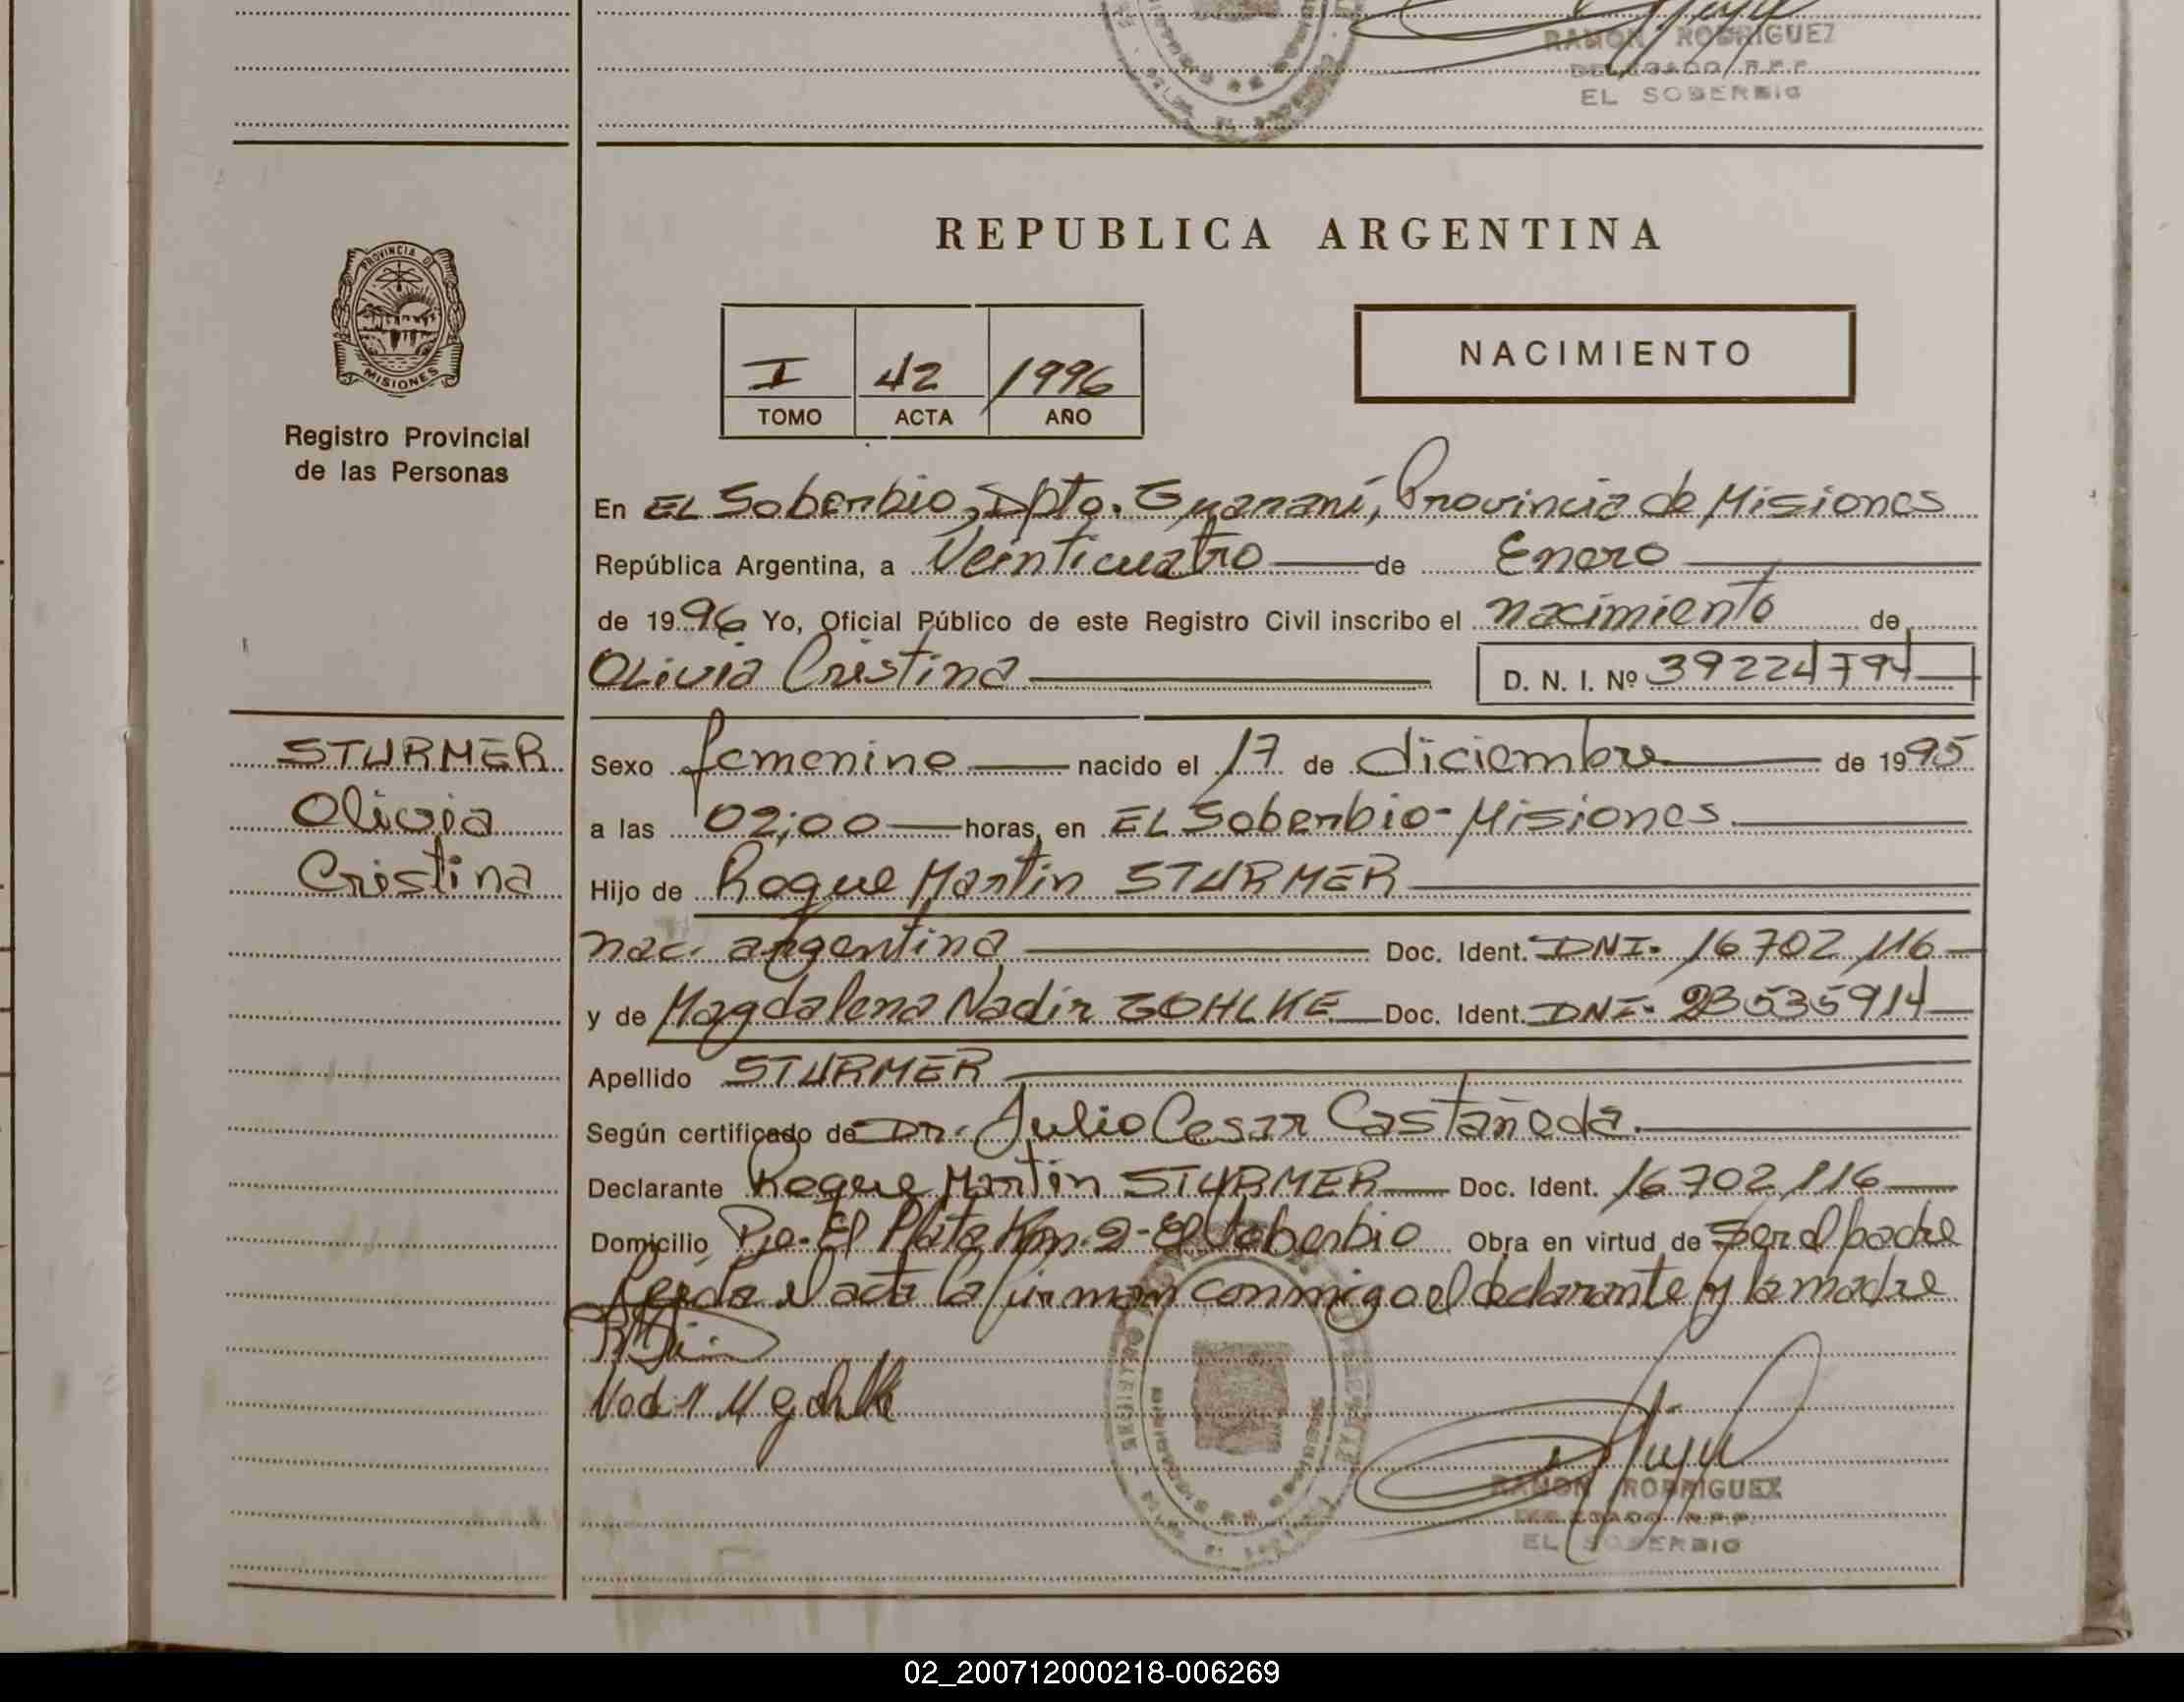 RAMON RODRIGUEZ
DELEGADO R.P.P.
EL SOBERBIO
REPUBLICA ARGENTINA
PROVINCIA DE
MISIONES
Registro Provincial
de las Personas
NACIMIENTO
I 42 1996
TOMO ACTA AÑO
En EL Soberbio, Dpto. Guaraní, Provincia de Misiones
República Argentina, a Veinticuatro de Enero
de 1996 Yo, Oficial Público de este Registro Civil inscribo el nacimiento de
OLivia Cristina D. N. I. Nº 39224794
STURMER
Olivia
Cristina
Sexo femenino nacido el 17 de diciembre de 1995
a las 02:00 horas, en EL Soberbio-Misiones
Hijo de Roque Martin STURMER
nac. argentina Doc. Ident. DNI. 16702116
y de Magdalena Nadir GOHLKE Doc. Ident. DNI. 23535914
Apellido STURMER
Según certificado de Dr. Julio Cesar Castañeda.
Declarante Roque Martin STURMER Doc. Ident. 16702116
Domicilio Pje. El Plata Km. 2-El Soberbio Obra en virtud de Ser el padre
Leída el acta la firman conmigo el declarante y la madre
RAMON RODRIGUEZ
DELEGADO R.P.P.
EL SOBERBIO
02_200712000218-006269